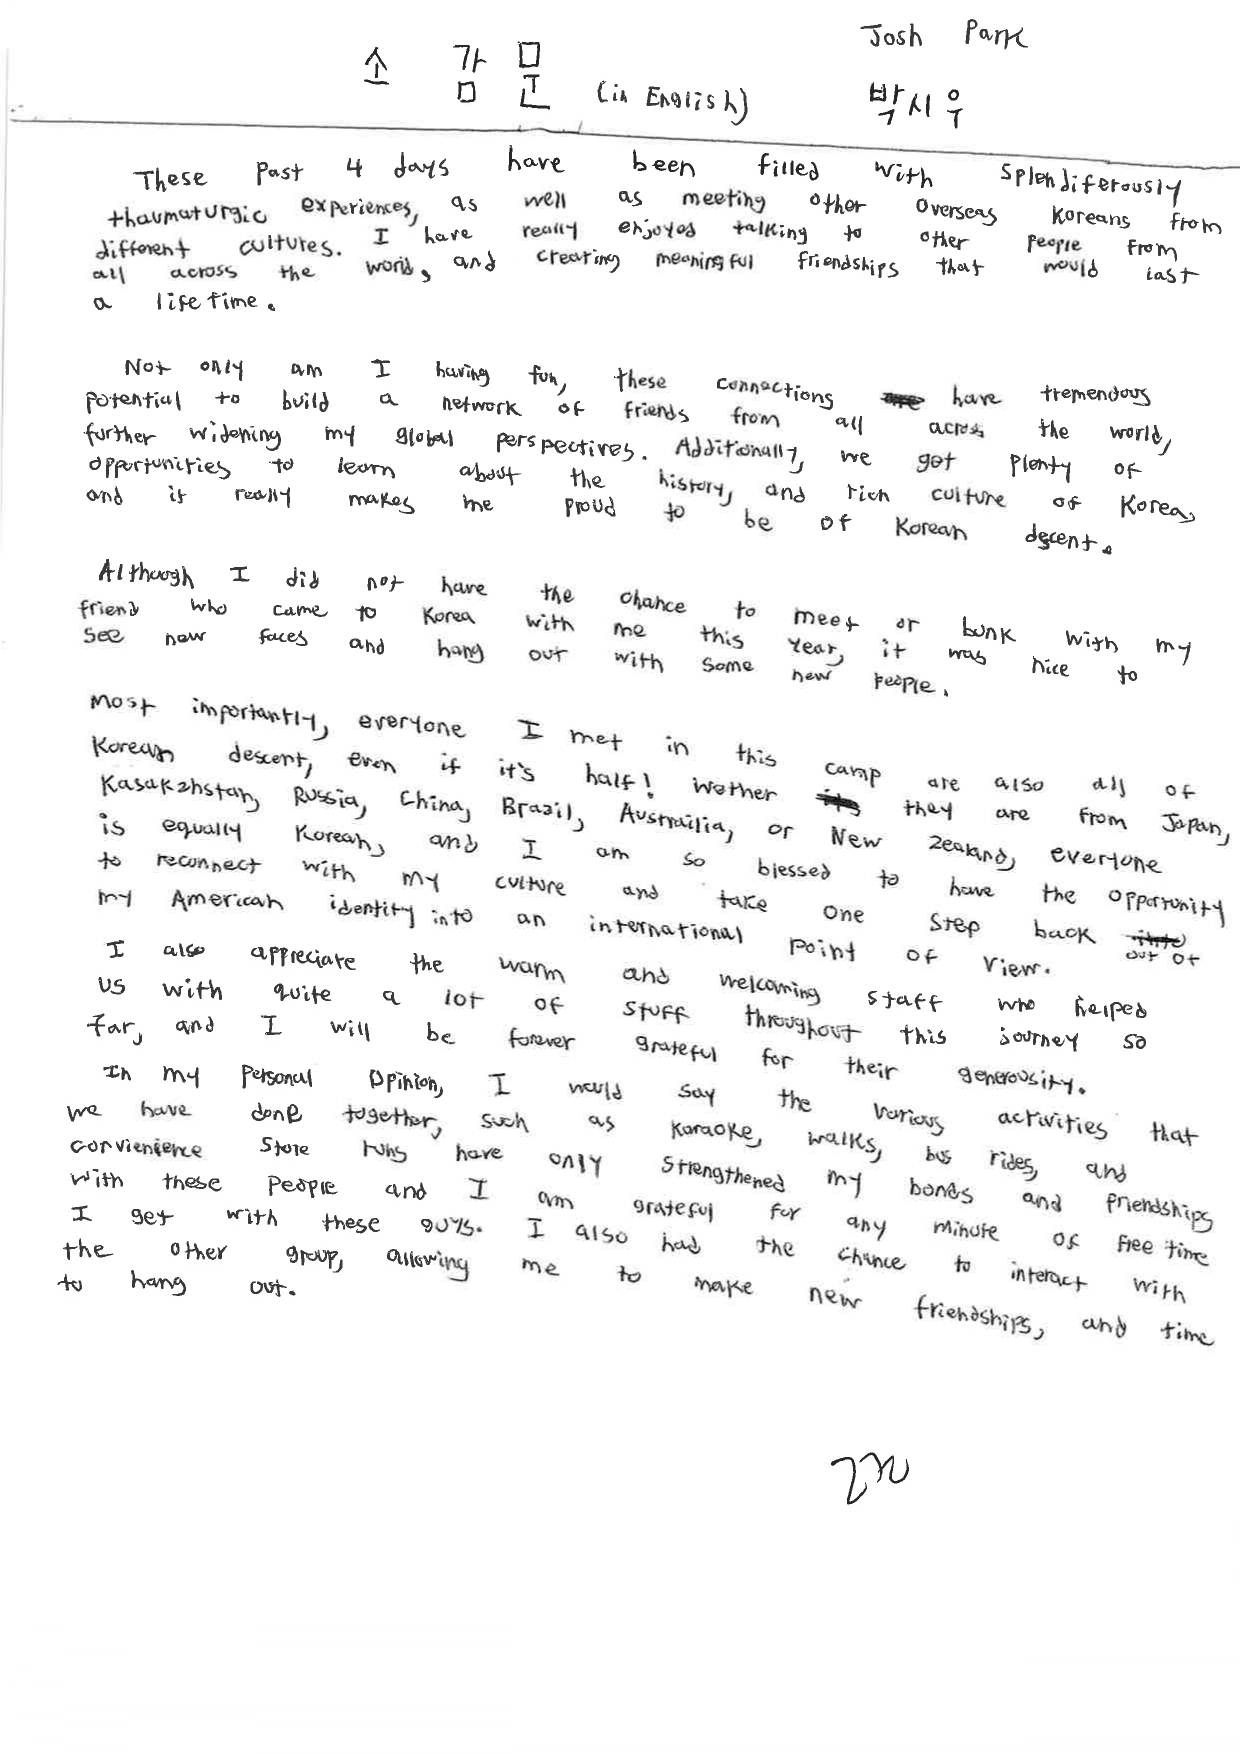 Josh Park
소 감 문 (in English)
박시우
These past 4 days have been filled with splendiferously
thaumaturgic experiences, as well as meeting other overseas Koreans from
different cultures. I have really enjoyed talking to other people from
all across the world, and creating meaningful friendships that would last
a lifetime.
Not only am I having fun, these connections have tremendous
potential to build a network of friends from all across the world,
further widening my global perspectives. Additionally, we got plenty of
opportunities to learn about the history, and rich culture of Korea,
and it really makes me proud to be of Korean descent.
Although I did not have the chance to meet or bunk with my
friend who came to Korea with me this year, it was nice to
see new faces and hang out with some new people.
Most importantly, everyone I met in this camp are also all of
Korean descent, even if it's half! Wether they are from Japan,
Kasakzhstan, Russia, China, Brazil, Austrailia, or New Zealand, everyone
is equally Korean, and I am so blessed to have the opportunity
to reconnect with my culture and take one step back out of
my American identity into an international point of view.
I also appreciate the warm and welcoming staff who helped
us with quite a lot of stuff throughout this journey so
far, and I will be forever grateful for their generousity.
In my personal opinion, I would say the various activities that
we have done together, such as karaoke, walks, bus rides, and
convienience store runs have only strengthened my bonds and friendships
with these people and I am grateful for any minute of free time
I get with these guys. I also had the chance to interact with
the other group, allowing me to make new friendships, and time
to hang out.